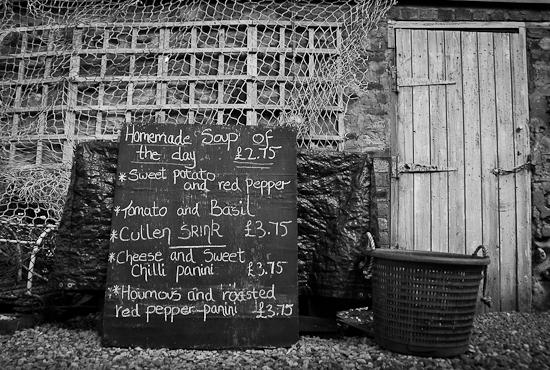 Homemade Soup of
the day £2.75
*Sweet potato
and red pepper
*Tomato and Basil
*Cullen SRINK £3.75
*Cheese and Sweet
Chilli panini £3.75
*Houmous and roasted
red pepper panini £3.75